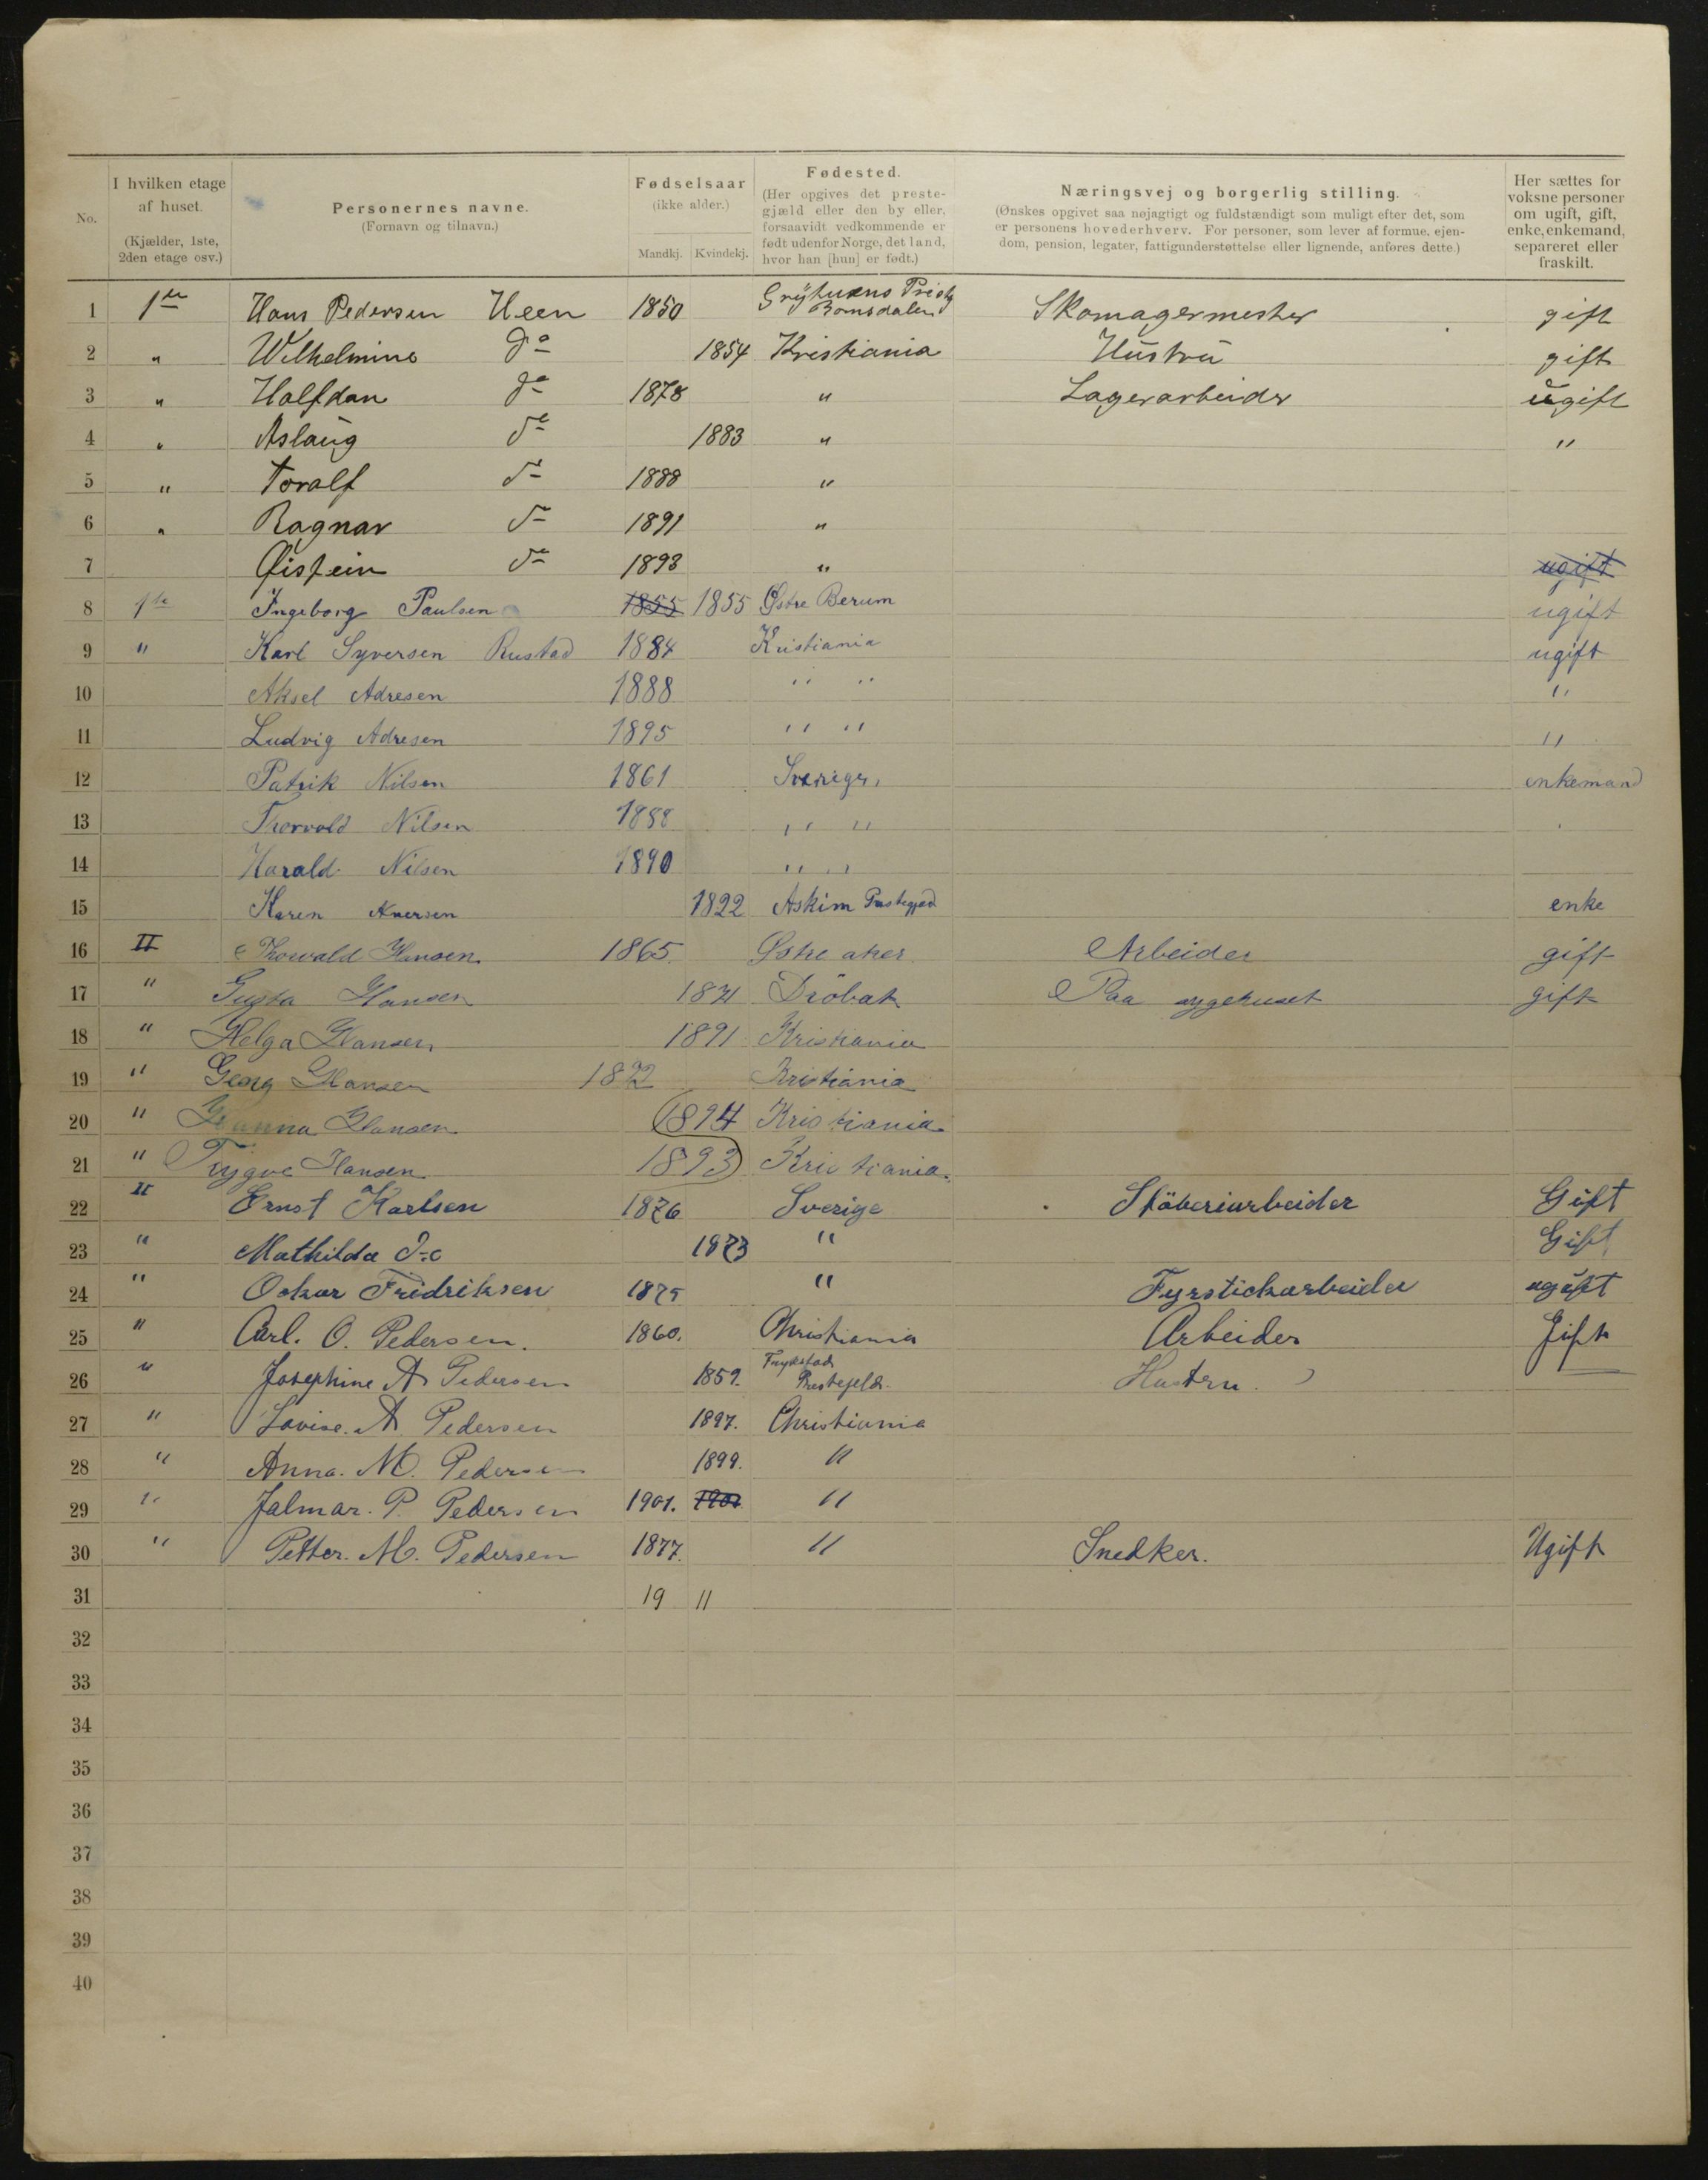 No.
I hvilken etage af huset.
(Kjælder, 1ste, 2den etage osv.)
Personernes navne.
(Fornavn og tilnavn.)
Fødselsaar
(ikke alder.)
Mandkj. Kvindekj.
Fødested.
(Her opgives det prestegjæld eller den by eller, forsaavidt vedkommende er født udenfor Norge, det land, hvor han [hun] er født.)
Næringsvej og borgerlig stilling.
(Ønskes opgivet saa nøjagtigt og fuldstændigt som muligt efter det, som er personens hovederhverv. For personer, som lever af formue, ejendom, pension, legater, fattigunderstøttelse eller lignende, anføres dette.)
Her sættes for voksne personer om ugift, gift, enke, enkemand, separeret eller fraskilt.
1 1ste Hans Pedersen Heen 1850 Grÿtuens Romsdalen Skomagermester gift
2 " Wilhelmine do 1854 Kristiania Hustru gift
3 " Halfdan do 1878 " Lagerarbeider ugift
4 " Aslaug do 1883 " "
5 " Toralf do 1888 "
6 " Ragnar do 1891 "
7 Øistein do 1893 " ugift
8 1ste Ingeborg Paulsen 1855 1855 Østre Berum ugift
9 " Karl Syversen Rustad 1884 Kristiania ugift
10 Aksel Adresen 1888 " " "
11 Ludvig Adresen 1895 " " "
12 Patrik Nilsen 1861 Sverige. enkemand
13 Thorvald Nilsen 1888 " "
14 Harald Nilsen 1890 " "
15 Karen 1822 Askim enke
16 II Thorvald Hansen 1865. Østre aker Arbeider gift
17 " Gusta Hansen 1871 Dröbak Paa sygehuset gift
18 " Helga Hansen 1891 Kristiania
19 " Georg Hansen 1892 Kristiania
20 " Hanna Hansen 1894 Kristiania
21 " Trygve Hansen 1893 Kristiania.
22 II Ernst Karlsen 1876 Sverige Stöberiarbeider Gift
23 " Mathilda do 1873 " Gift
24 " Oskar Fridriksen 1875 " Fyrstickarbeider ugift
25 " Carl. O. Pedersen. 1860. Christiania Arbeider Gift
26 " Josephine A Pedersen 1859. Prestegjeld. Hustru.
27 " Lovise. A. Pedersen 1897. Christiania
28 " Anna. M. Pedersen 1899. "
29 " Jalmar. P. Pedersen 1901. 1901 "
30 " Petter. M. Pedersen 1877. " Snedker. Ugift
31 19 11
32
33
34
35
36
37
38
39
40